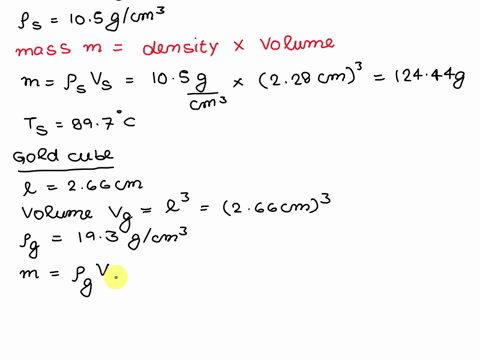 ρs = 10.5 g/cm³
mass m = density × volume
m = ρs Vs = 10.5 g/cm³ × (2.28 cm)³ = 124.44 g
Ts = 89.7°C
Gold cube
l = 2.66 cm
Volume Vg = l³ = (2.66 cm)³
ρg = 19.3 g/cm³
m = ρg V.